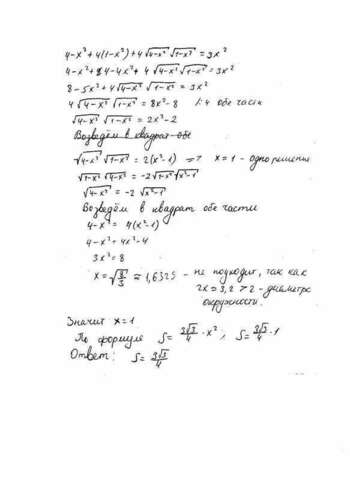 4-x²+4(1-x²)+4√4-x² √1-x² = 3x²
4-x²+4-4x²+4√4-x² √1-x² = 3x²
8-5x²+4√4-x² √1-x² = 3x²
4√4-x² √1-x² = 8x²-8 /:4 обе части
√4-x² √1-x² = 2x²-2
Возведём в квадрат обе
√4-x² √1-x² = 2(x²-1) => x=1 - одно решение
√1-x² √4-x² = -2√1-x² √x²-1
√4-x² = -2√x²-1
Возведём в квадрат обе части
4-x² = 4(x²-1)
4-x² = 4x²-4
3x²=8
x=√8/5 ≈ 1,6325 - не подходит, так как
2x=3,2 > 2 - диаметра
окружности.
Значит x=1
По формуле S= 3√3/4 · x², S= 3√3/4 · 1
Ответ: S= 3√3/4